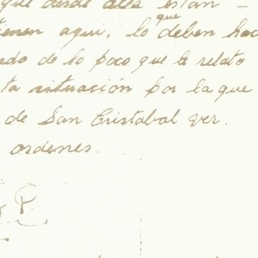 que desde allá están -
tienen aqui, lo que deben hac
ndo de lo poco que le relato
ta situación por la que
de San Cristobal ver.
ordenes.
P.